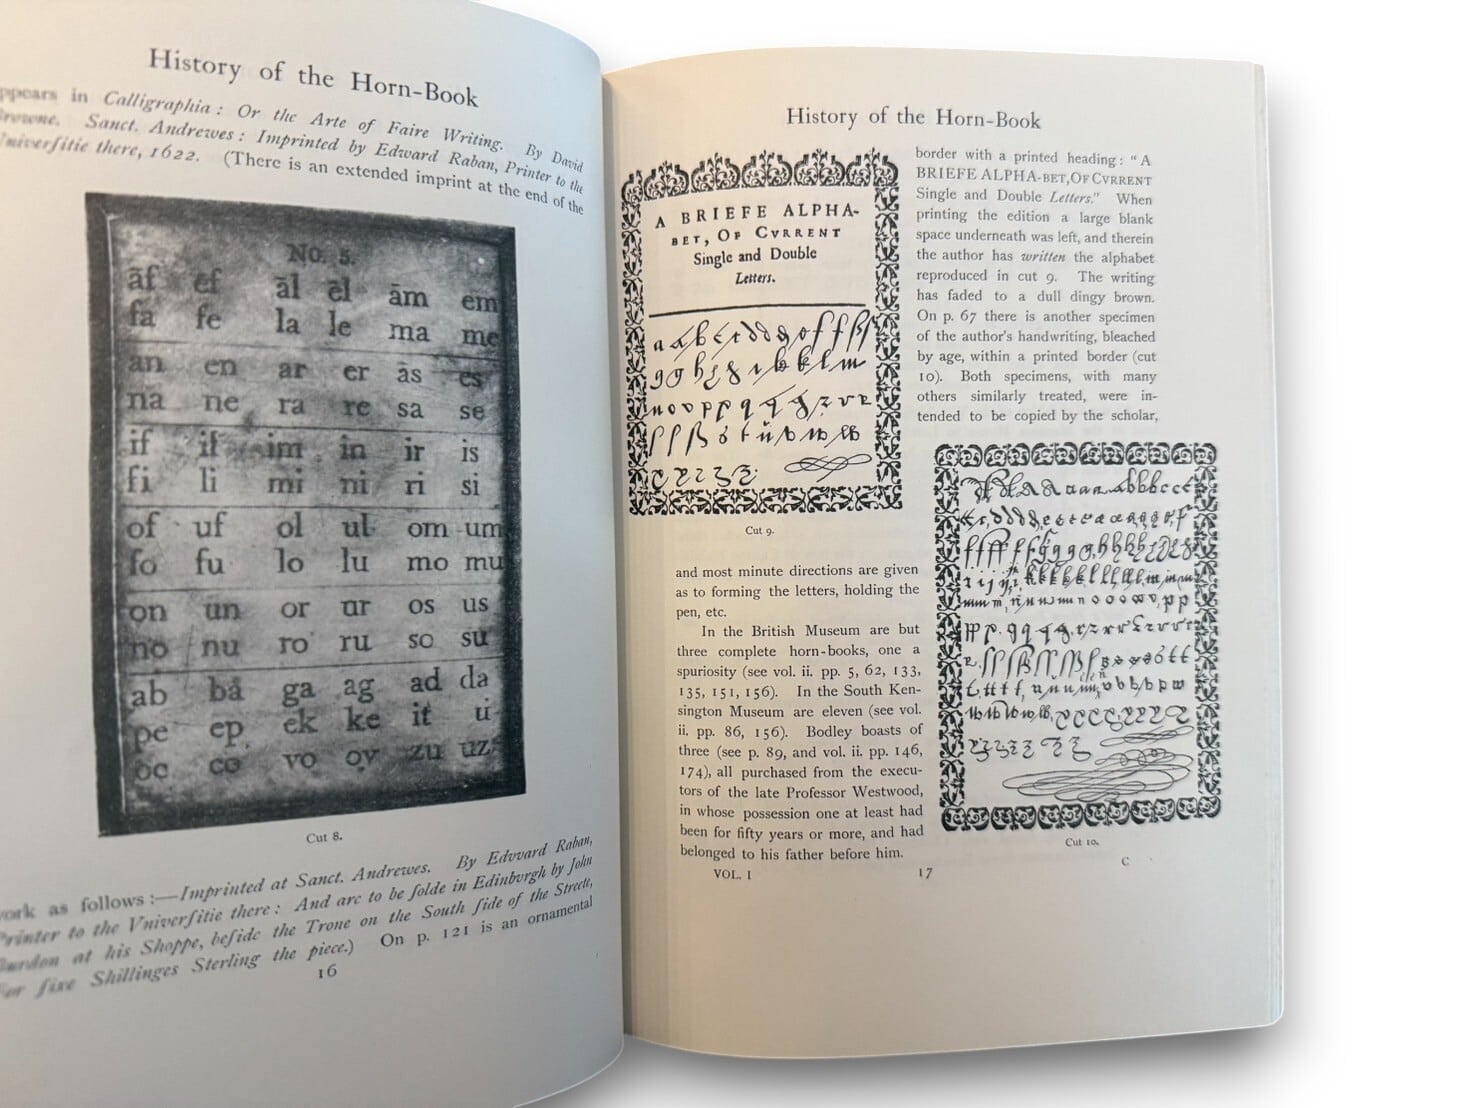 History of the Horn-Book
appears in Calligraphia: Or the Arte of Faire Writing. By David
Browne. Sanct. Andrewes: Imprinted by Edward Raban, Printer to the
Univerſitie there, 1622. (There is an extended imprint at the end of the
No. 5.
āf ef āl ēl ām em
fa fe la le ma me
an en ar er ās es
na ne ra re sa se
if il im in ir is
fi li mi ni ri si
of uf ol ul om um
fo fu lo lu mo mu
on un or ur os us
no nu ro ru so su
ab ba ga ag ad da
pe ep ek ke it
oc co vo ov zu uz
Cut 8.
work as follows:—Imprinted at Sanct. Andrewes. By Edvvard Raban,
Printer to the Vniverſitie there: And are to be ſolde in Edinbvrgh by John
Burdon at his Shoppe, beſide the Trone on the South ſide of the Streete,
For ſixe Shillinges Sterling the piece.) On p. 121 is an ornamental
16
History of the Horn-Book
A BRIEFE ALPHA-
BET, OF CVRRENT
Single and Double
Letters.
Cut 9.
border with a printed heading: “A
BRIEFE ALPHA-BET, OF CVRRENT
Single and Double Letters.” When
printing the edition a large blank
space underneath was left, and therein
the author has written the alphabet
reproduced in cut 9. The writing
has faded to a dull dingy brown.
On p. 67 there is another specimen
of the author's handwriting, bleached
by age, within a printed border (cut
10). Both specimens, with many
others similarly treated, were in-
tended to be copied by the scholar,
and most minute directions are given
as to forming the letters, holding the
pen, etc.
In the British Museum are but
three complete horn-books, one a
spuriosity (see vol. ii. pp. 5, 62, 133,
135, 151, 156). In the South Ken-
sington Museum are eleven (see vol.
ii. pp. 86, 156). Bodley boasts of
three (see p. 89, and vol. ii. pp. 146,
174), all purchased from the execu-
tors of the late Professor Westwood,
in whose possession one at least had
been for fifty years or more, and had
belonged to his father before him.
Cut 10.
VOL. I
17
C